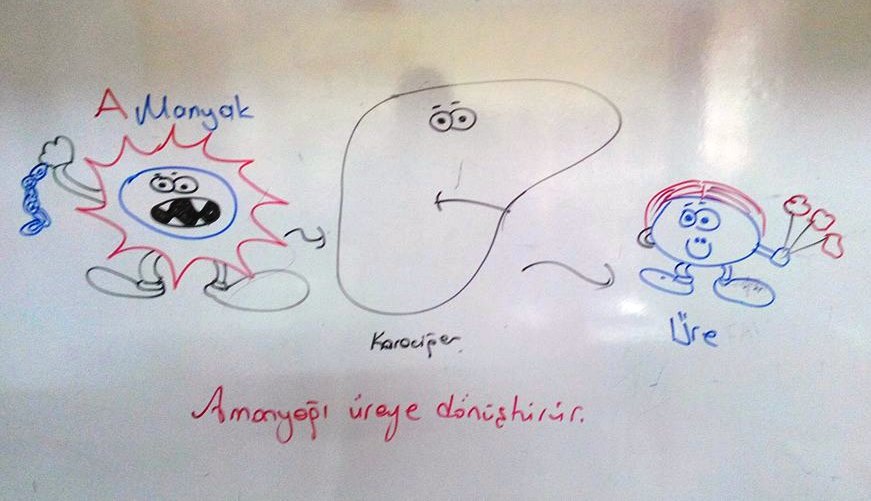 A Manyak
Karaciğer
Üre
Amonyağı üreye dönüştürür.